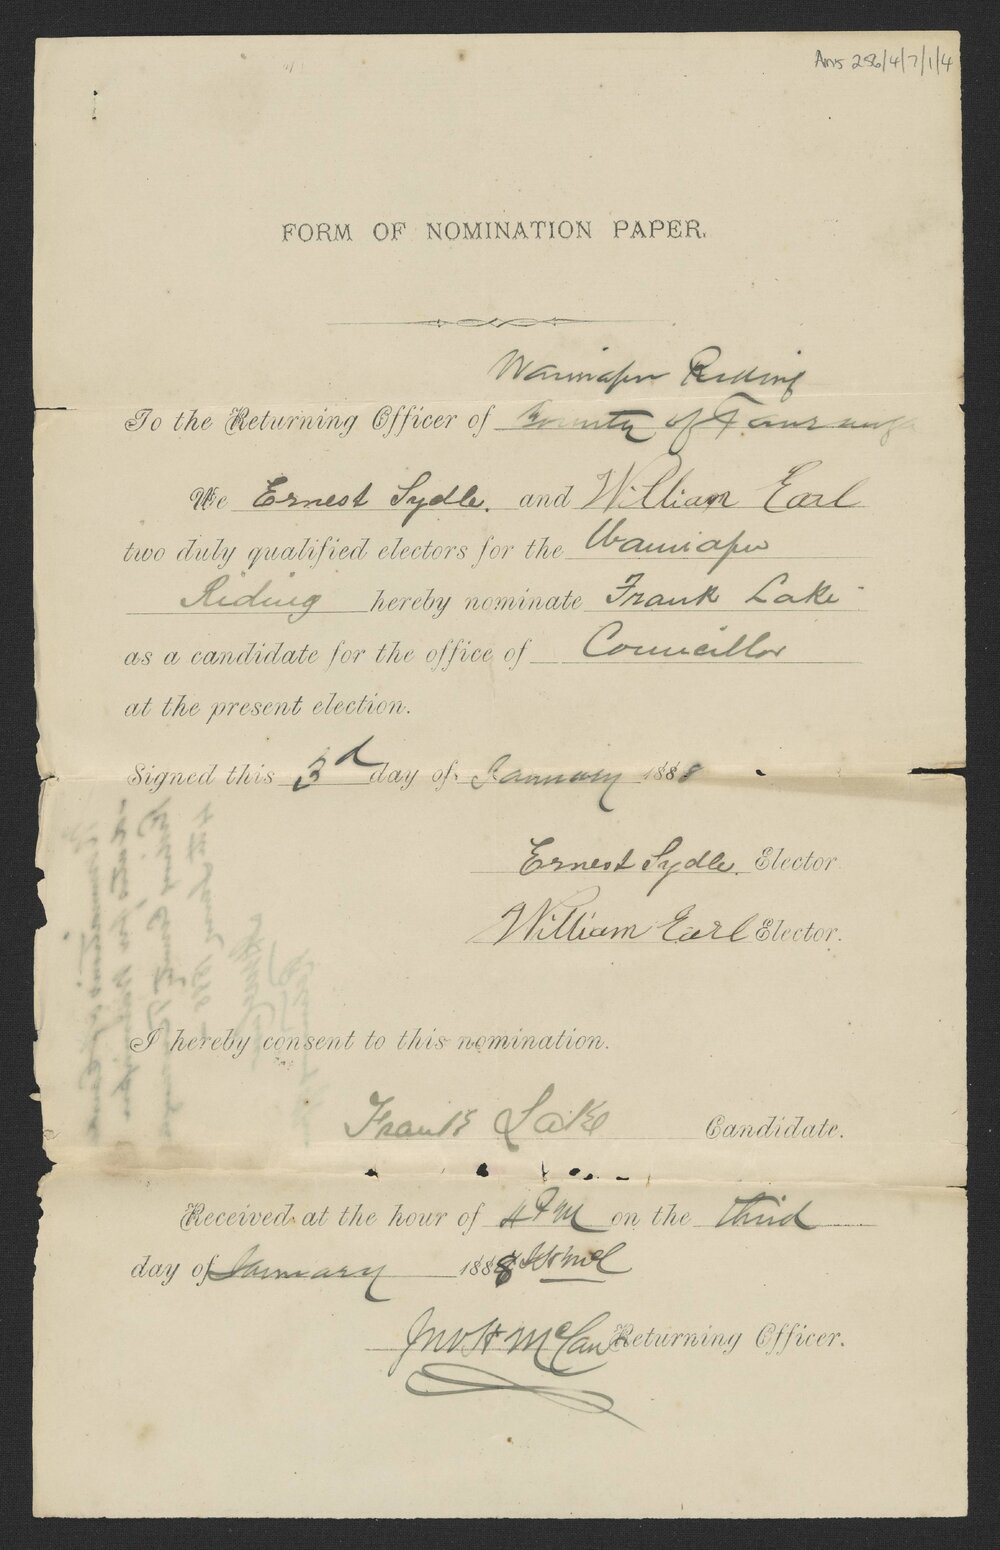 Ams 286/4/7/1/4
FORM OF NOMINATION PAPER.
Wairiapu Riding
To the Returning Officer of County of Tauranga
We Ernest Sydle. and William Earl
two duly qualified electors for the Wairiapu
Riding hereby nominate Frank Lake
as a candidate for the office of Councillor
at the present election.
Signed this 3d day of January 1888
Ernest Sydle. Elector.
William Earl Elector.
I hereby consent to this nomination.
Frank Lake Candidate.
Received at the hour of 4 PM on the third
day of January 1888
Jno H McCaw Returning Officer.